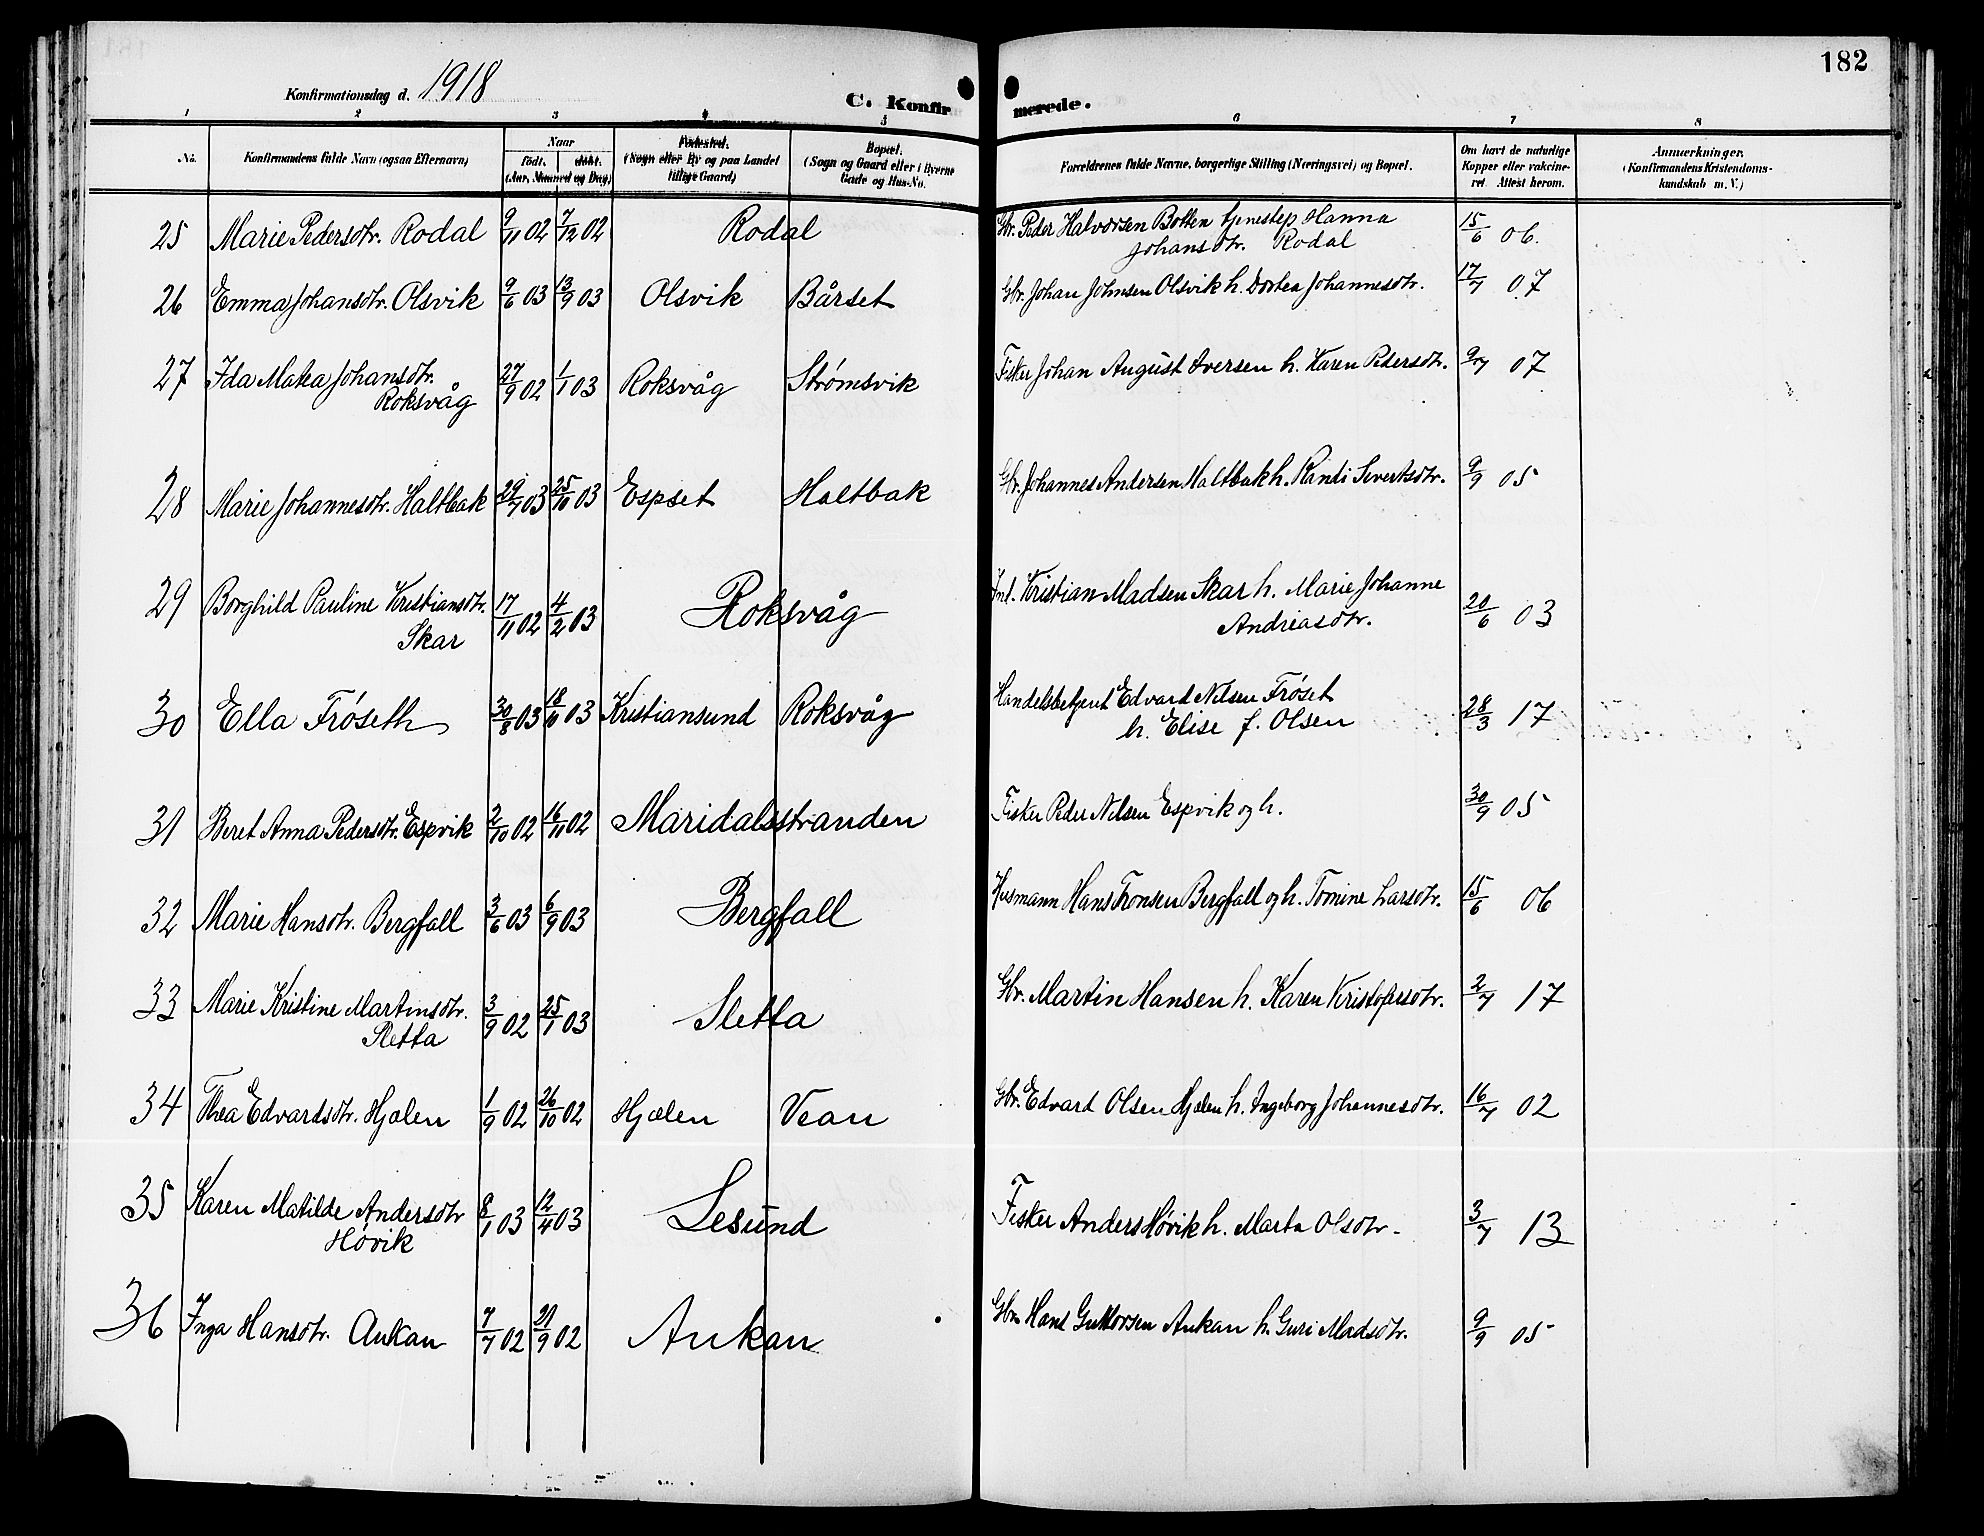 182
Konfirmationsdag d. 1918
C. Konfirmerede.
1 2 3 4 5 6 7 8
No. Konfirmandens fulde Navn (ogsaa Efternavn) Naar født. døbt. (Aar, Maaned og Dag) Fødested. (Sogn eller By og paa Landet tillige Gaard) Bopæl. (Sogn og Gaard eller i Byerne Gade og Hus-No. Forældrenes fulde Navne, borgerlige Stilling (Næringsvei) og Bopæl. Om havt de naturlige Kopper eller vakcineret Attest herom. Anmærkninger. (Konfirmandens Kristendomskundskab m. V.)
25 Marie Pedersdtr. Rodal 9/11 02 7/12 02 Rodal Gbr. Peder Halvorsen Botten tjenestep Hanna 15/6 06.
Johansdtr. Rodal
26 Emma Johansdtr. Olsvik 9/6 03 13/9 03 Olsvik Bårset Gbr. Johan Johnsen Olsvik h. Dortea Johannesdtr. 17/7 07
27 Ida Matea Johansdtr. 27/9 02 1/1 03 Roksvåg Strømsvik Fisker Johan August Iversen h. Karen Pedersdtr. 9/7 07
Roksvåg
28 Marie Johannesdtr. Haltbak 29/7 03 25/10 03 Espset Haltbak Gbr. Johannes Andersen Haltbak h. Randi Severtsdtr. 9/9 05
29 Borghild Pauline Kristiansdtr. 17/11 02 4/2 03 Roksvåg Inl. Kristian Madsen Skar h. Marie Johanne 20/6 03
Skar Andreasdtr.
30 Ella Frøseth 30/8 03 18/10 03 Kristiansund Roksvåg Handelsbetjent Edvard Nilsen Frøset 28/3 17
h. Elise f. Olsen
31 Beret Anna Pedersdtr. Espvik 2/10 02 16/11 02 Maridalsstranden Fisker Peder Nilsen Espvik og h. 30/9 05
32 Marie Hansdtr. Bergfall 3/6 03 6/9 03 Bergfall Husmann Hans Tronsen Bergfall og h. Tomine Larsdtr. 15/6 06
33 Marie Kristine Martinsdtr. 3/9 02 25/1 03 Sletta Gbr. Martin Hansen h. Karen Kristofersdtr. 2/7 17
Sletta
34 Thea Edvardsdtr. Hjælen 1/9 02 26/10 02 Hjælen Vean Gbr. Edvard Olsen Hjælen h. Ingeborg Johannesdtr. 16/7 02
35 Karen Matilde Andersdtr 8/1 03 12/4 03 Lesund Fisker Anders Høvik h. Marta Olsdtr. 3/7 13
Høvik
36 Inga Hansdtr. Aukan 7/7 02 21/9 02 Aukan Gbr. Hans Guttorsen Aukan h. Guri Madsdtr. 9/9 05